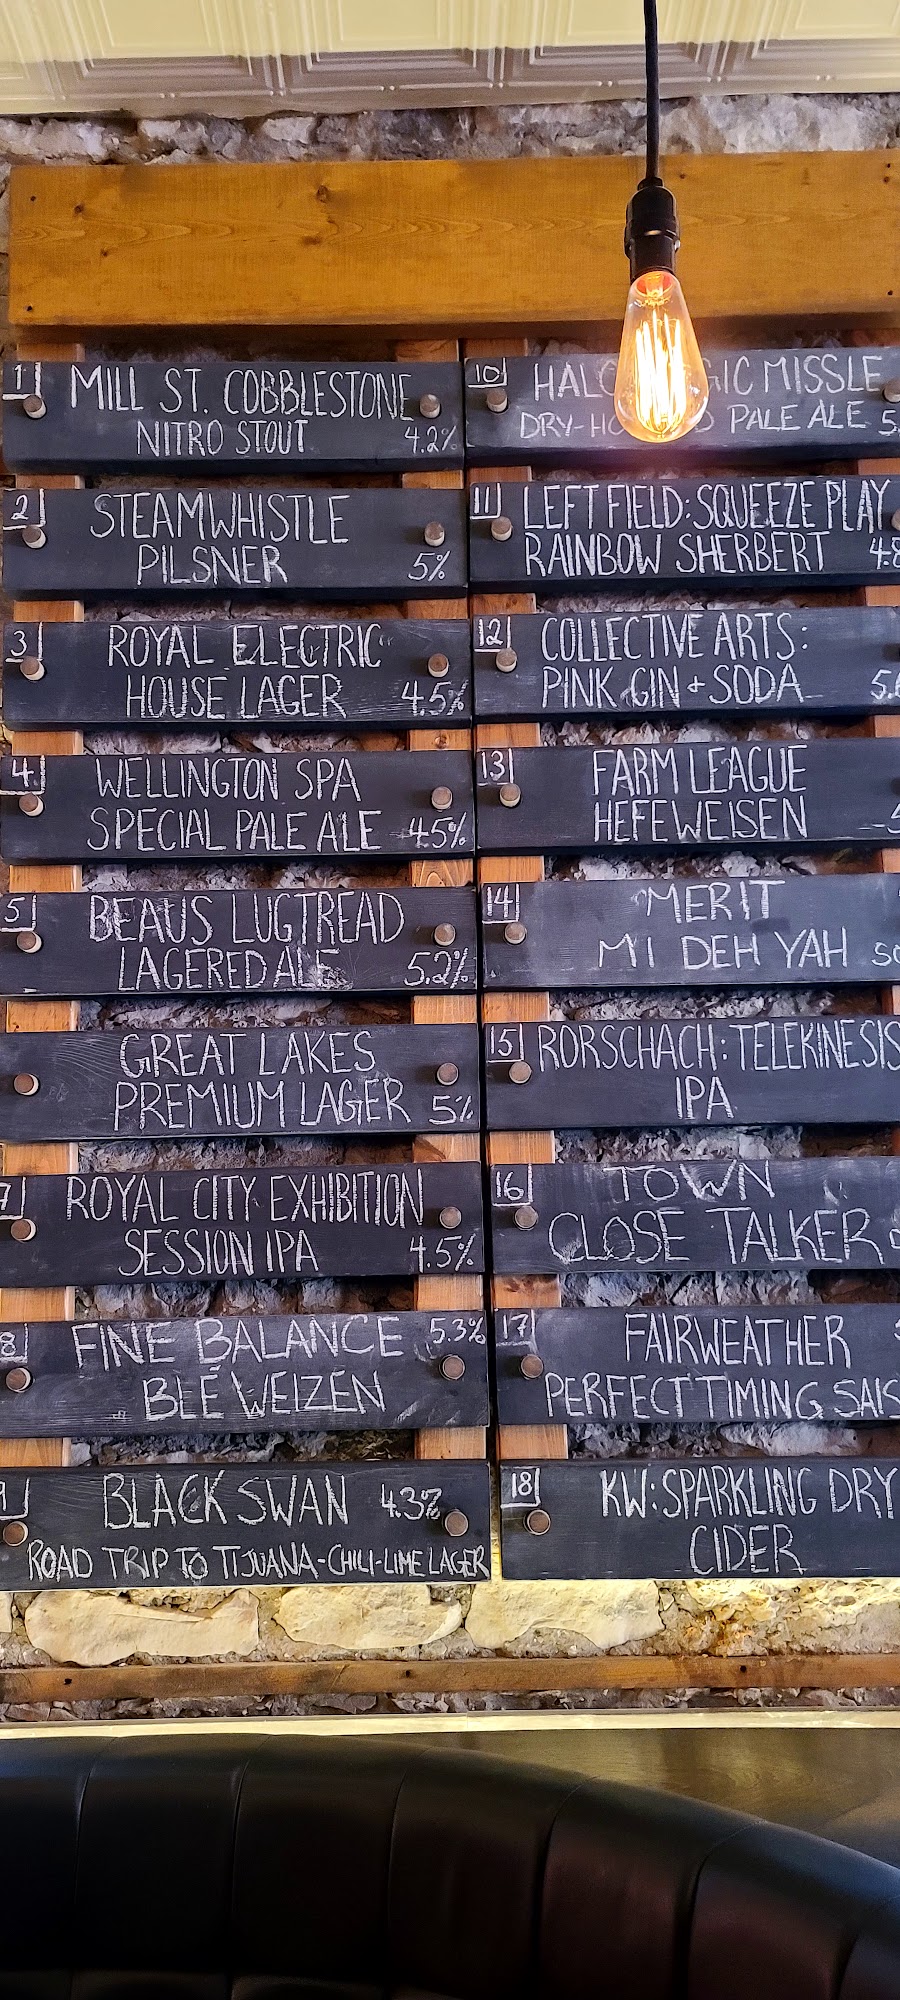 1
MILL ST. COBBLESTONE
NITRO STOUT 4.2%
2
STEAMWHISTLE
PILSNER 5%
3
ROYAL ELECTRIC
HOUSE LAGER 4.5%
4
WELLINGTON SPA
SPECIAL PALE ALE 4.5%
5
BEAUS LUGTREAD
LAGERED ALE 5.2%
GREAT LAKES
PREMIUM LAGER 5%
7
ROYAL CITY EXHIBITION
SESSION IPA 4.5%
8
FINE BALANCE 5.3%
BLÉ WEIZEN
9
BLACK SWAN 4.3%
ROAD TRIP TO TIJUANA-CHILI-LIME LAGER
10
MISSLE
PALE ALE
11
LEFT FIELD: SQUEEZE PLAY
RAINBOW SHERBERT 4.8
12
COLLECTIVE ARTS:
PINK GIN + SODA
13
FARM LEAGUE
HEFEWEISEN
14
MERIT
MI DEH YAH
15
RORSCHACH: TELEKINESIS
IPA
16
TOWN
CLOSE TALKER
17
FAIRWEATHER
PERFECT TIMING
18
KW: SPARKLING DRY
CIDER